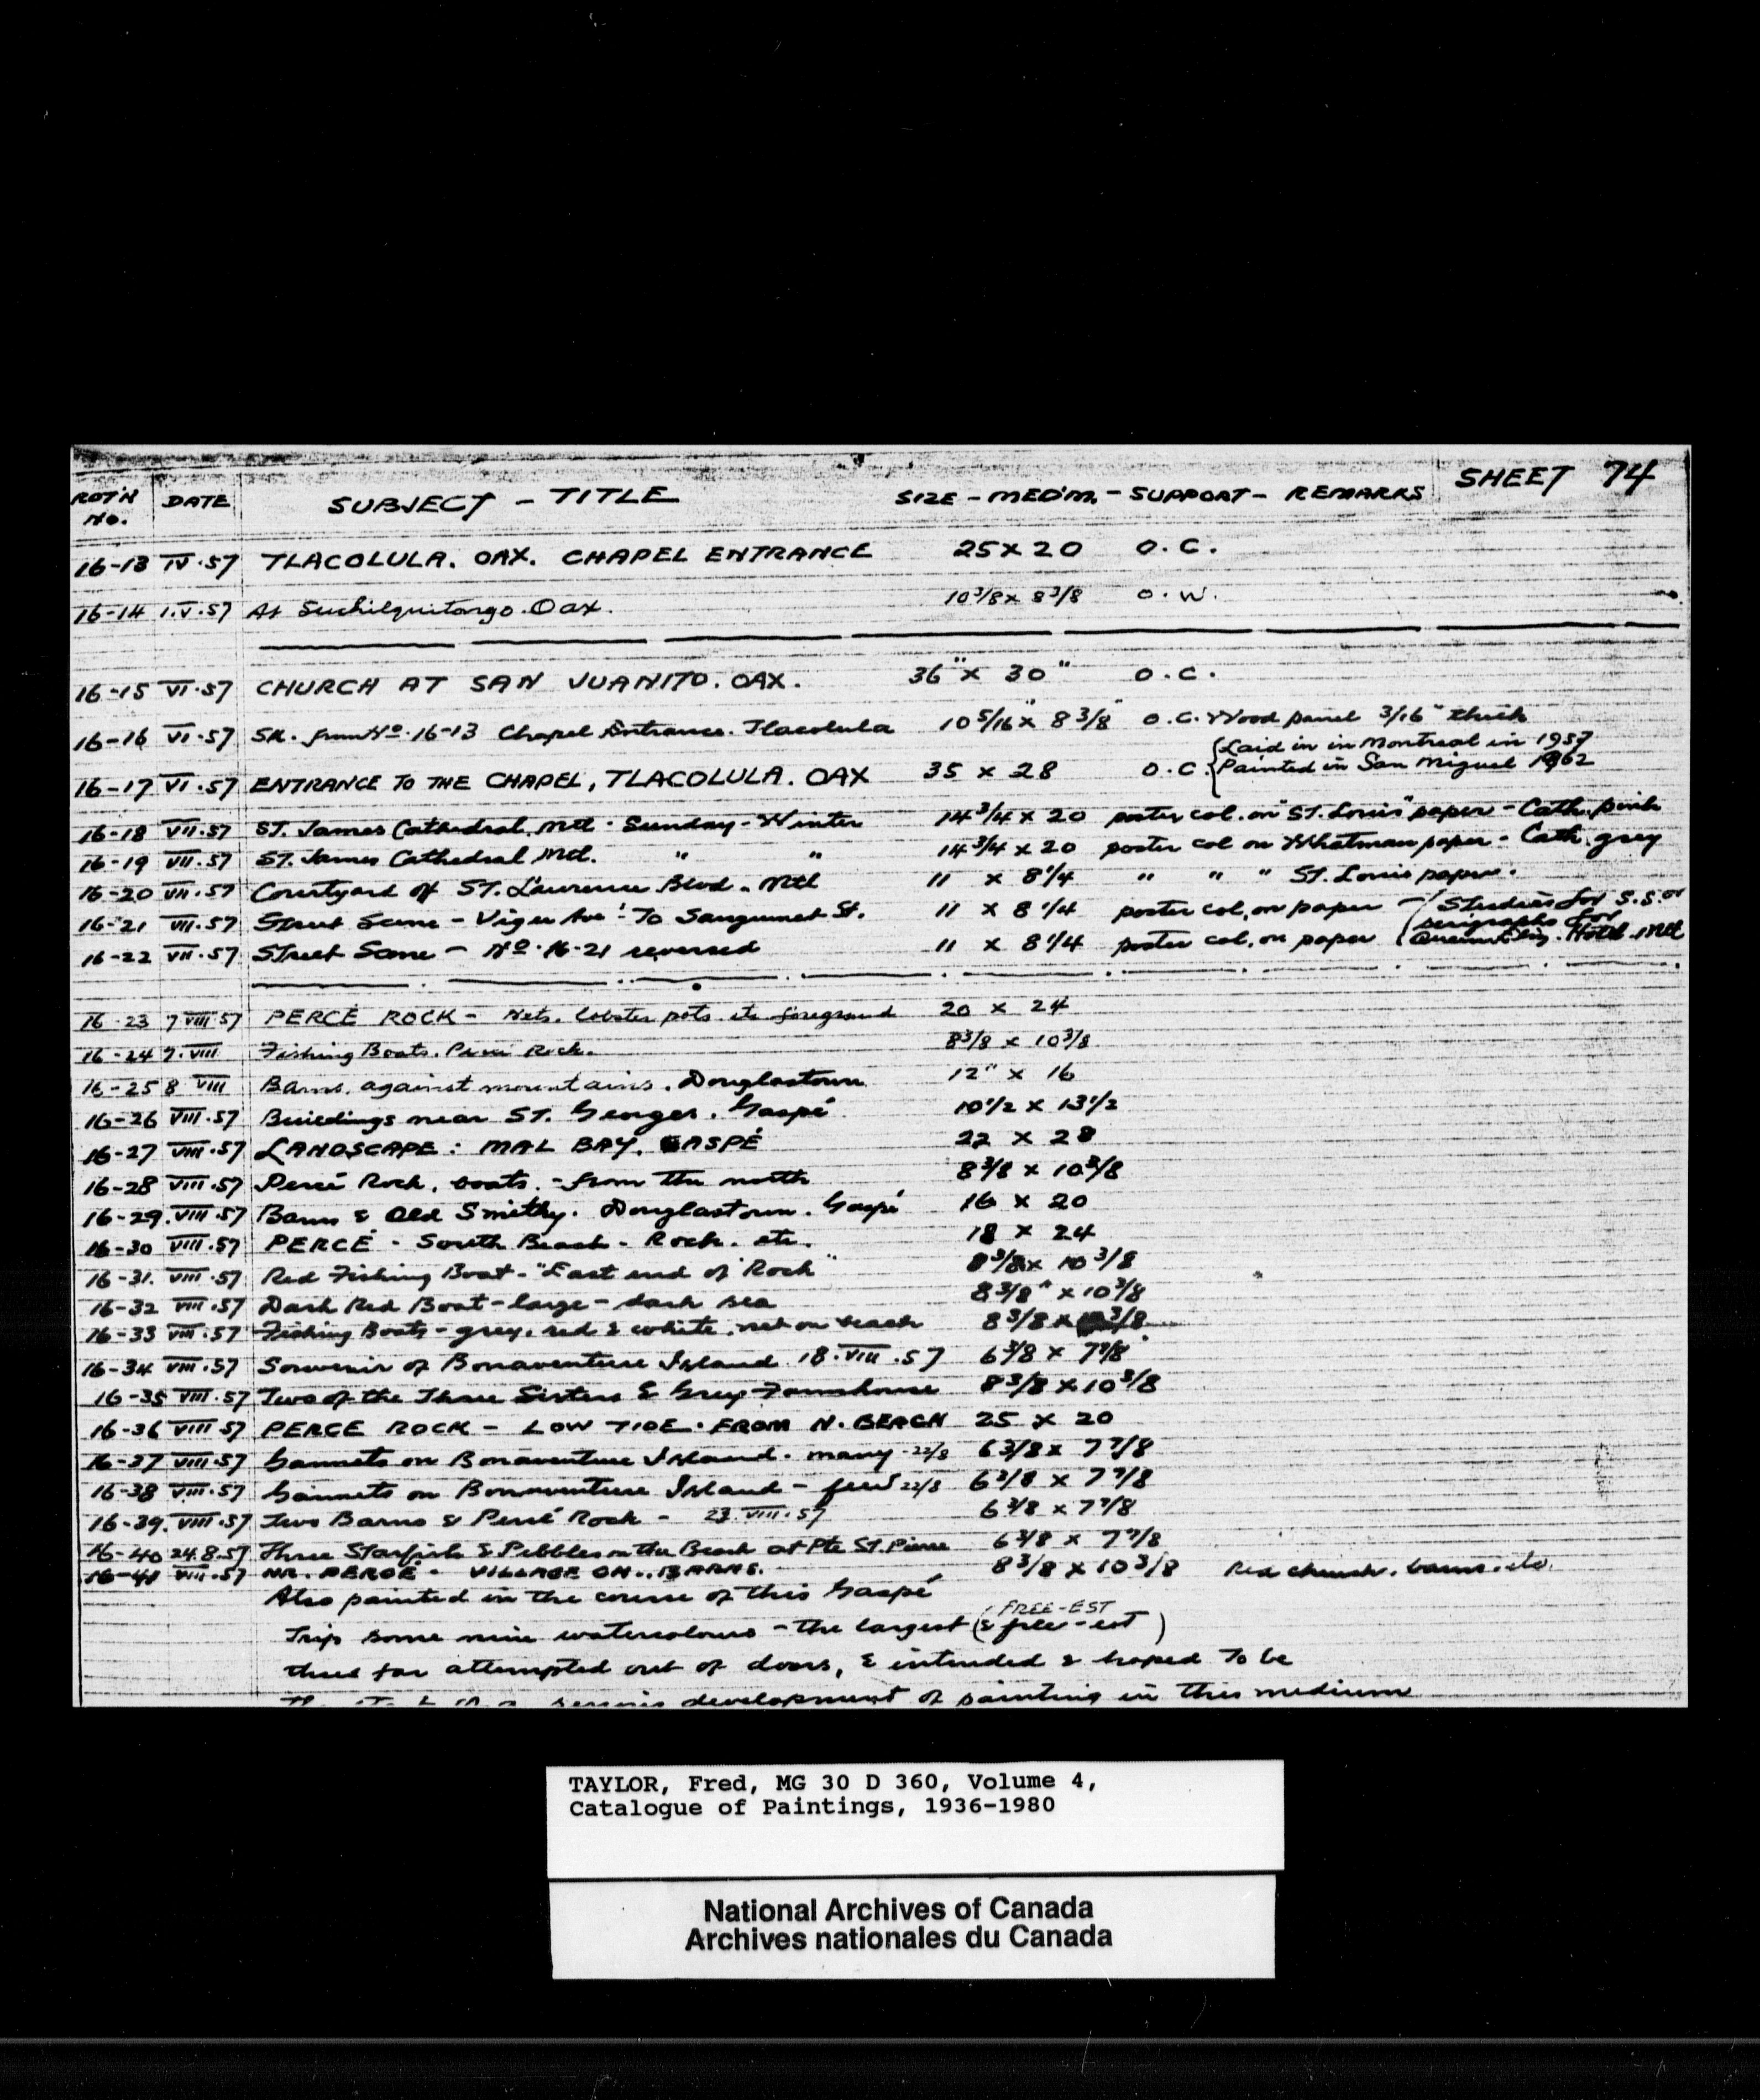 SHEET 74
ROT'N No. DATE SUBJECT - TITLE SIZE - MED'M. - SUPPORT - REMARKS
16-13 IV.57 TLACOLULA. OAX. CHAPEL ENTRANCE 25 x 20 O.C.
16-14 1.V.57 At Suchilquitongo. Oax. 10 3/8 x 8 3/8 O.W.
16-15 VI.57 CHURCH AT SAN JUANITO. OAX. 36" x 30" O.C.
16-16 VI.57 SK. from No. 16-13 Chapel Entrance. Tlacolula 10 5/16" x 8 3/8" O.C. Wood panel 3/16" thick
16-17 VI.57 ENTRANCE TO THE CHAPEL, TLACOLULA. OAX 35 x 28 O.C. {Laid in in Montreal in 1957
Painted in San Miguel 1962
16-18 VII.57 ST. James Cathedral, Mtl. Sunday - Winter 14 3/4 x 20 poster col. on "ST. Louis" paper - Cath. pink
16-19 VII.57 ST. James Cathedral, Mtl. " " 14 3/4 x 20 poster col on Whatman paper - Cath. grey
16-20 VII.57 Courtyard off ST. Lawrence Blvd. Mtl 11 x 8 1/4 " " " ST. Louis paper.
16-21 VII.57 Street Scene - Viger Ave - To Sanguinet St. 11 x 8 1/4 poster col. on paper - (Studies for S.S. or
serigraphs for
16-22 VII.57 Street Scene - No. 16-21 reversed 11 x 8 1/4 poster col. on paper (Queen Eliz. Hotel. Mtl
16-23 7 VIII 57 PERCÉ ROCK - Nets, lobster pots etc foreground 20 x 24
16-24 7. VIII Fishing Boats. Percé Rock. 8 3/8 x 10 3/8
16-25 8 VIII Barns. against mountains. Douglastown 12" x 16
16-26 VIII.57 Buildings near ST. Georges. Gaspé 10 1/2 x 13 1/2
16-27 VIII.57 LANDSCAPE: MAL BAY. GASPÉ 22 x 28
16-28 VIII.57 Percé Rock, boats. - from the north 8 3/8 x 10 3/8
16-29. VIII.57 Barns & Old Smithy. Douglastown. Gaspé 16 x 20
16-30 VIII.57 PERCÉ - South Beach - Rock. etc. 18 x 24
16-31. VIII.57 Red Fishing Boat - "East end of Rock" 8 3/8 x 10 3/8
16-32 VIII.57 Dark Red Boat - large - dark sea 8 3/8" x 10 3/8
16-33 VIII.57 Fishing Boats - grey, red & white, net on beach 8 3/8 x 10 3/8
16-34 VIII.57 Souvenir of Bonaventure Island 18.VIII.57 6 3/8 x 7 7/8
16-35 VIII.57 Two of the Three Sisters & Grey Farmhouse 8 3/8 x 10 3/8
16-36 VIII 57 PERCE ROCK - LOW TIDE. FROM N. BEACH 25 x 20
16-37 VIII.57 Gannets on Bonaventure Island. many - 22/8 6 3/8 x 7 7/8
16-38 VIII.57 Gannets on Bonaventure Island - few 22/8 6 3/8 x 7 7/8
16-39. VIII.57 Two Barns & Percé Rock - 23.VIII.57 6 3/8 x 7 7/8
16-40 24.8.57 Three Starfish & Pebbles on the Beach at Pte ST. Pierre 6 3/8 x 7 7/8
16-41 VIII.57 NR. PERCÉ - VILLAGE ON.. BARNS. 8 3/8 x 10 3/8 Red church. barns. etc.
Also painted in the course of this Gaspé
FREE-EST
Trip some nine watercolours - the largest (& free-est)
thus far attempted out of doors, & intended & hoped to be
development of painting in this medium
TAYLOR, Fred, MG 30 D 360, Volume 4,
Catalogue of Paintings, 1936-1980
National Archives of Canada
Archives nationales du Canada